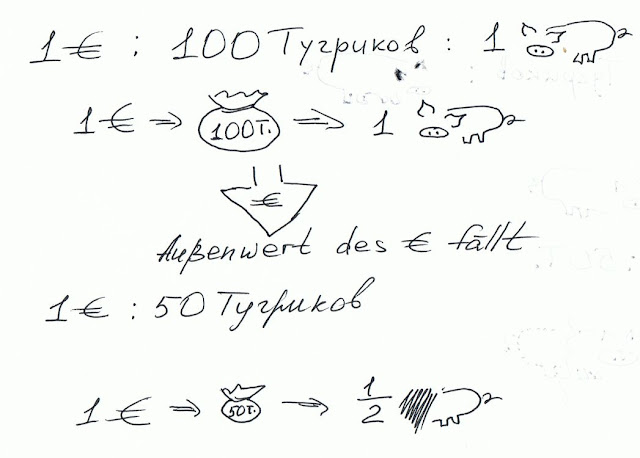 1€ : 100 Тугриков : 1
1€ ⇒ 100Т. ⇒ 1
€
Außenwert des € fällt
1€ : 50 Тугриков
1€ ⇒ 50Т. ⇒ 1/2